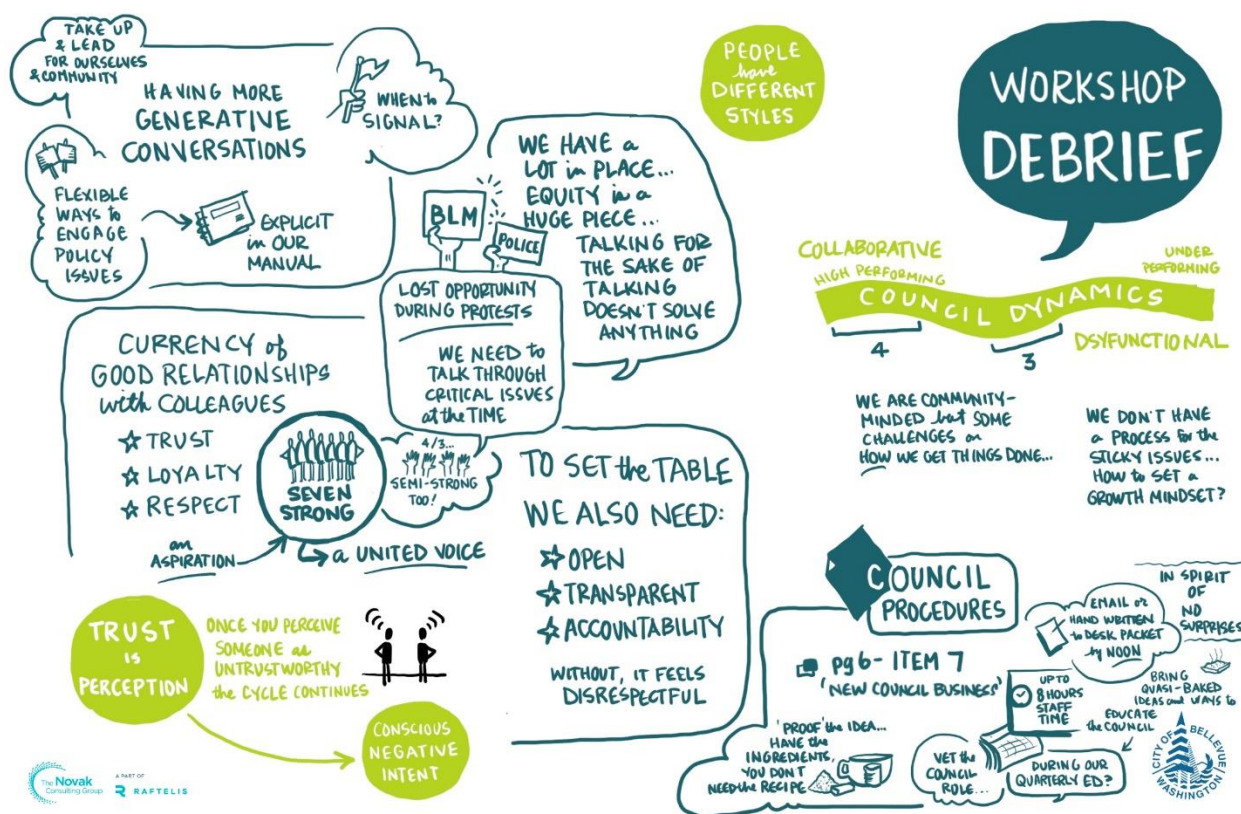 TAKE UP
& LEAD
FOR OURSELVES
& COMMUNITY
HAVING MORE
GENERATIVE
CONVERSATIONS
WHEN to
SIGNAL?
FLEXIBLE
WAYS to
ENGAGE
POLICY
ISSUES
EXPLICIT
in OUR
MANUAL
PEOPLE
have
DIFFERENT
STYLES
WORKSHOP
DEBRIEF
WE HAVE a
LOT in PLACE...
EQUITY is a
HUGE PIECE...
TALKING FOR
THE SAKE OF
TALKING
DOESN'T SOLVE
ANYTHING
BLM
POLICE
LOST OPPORTUNITY
DURING PROTESTS
WE NEED to
TALK THROUGH
CRITICAL ISSUES
at the TIME
COLLABORATIVE
HIGH PERFORMING
UNDER
PERFORMING
COUNCIL DYNAMICS
4
3
DSYFUNCTIONAL
WE ARE COMMUNITY-
MINDED but SOME
CHALLENGES on
HOW WE GET THINGS DONE...
WE DON'T HAVE
a PROCESS for the
STICKY ISSUES...
HOW to SET a
GROWTH MINDSET?
CURRENCY of
GOOD RELATIONSHIPS
with COLLEAGUES
TRUST
LOYALTY
RESPECT
SEVEN
STRONG
4/3...
SEMI-STRONG
TOO!
an
ASPIRATION
a UNITED VOICE
TO SET the TABLE
WE ALSO NEED:
OPEN
TRANSPARENT
ACCOUNTABILITY
WITHOUT, IT FEELS
DISRESPECTFUL
TRUST
is
PERCEPTION
ONCE YOU PERCEIVE
SOMEONE as
UNTRUSTWORTHY
the CYCLE CONTINUES
CONSCIOUS
NEGATIVE
INTENT
COUNCIL
PROCEDURES
pg 6 - ITEM 7
'NEW COUNCIL BUSINESS'
EMAIL or
HAND WRITTEN
to DESK PACKET
by NOON
IN SPIRIT
OF
NO
SURPRISES
UP TO
8 HOURS
STAFF
TIME
BRING
QUASI-BAKED
IDEAS and WAYS to
EDUCATE
the COUNCIL
'PROOF' the IDEA...
HAVE the
INGREDIENTS,
YOU DON'T
NEED the RECIPE
VET the
COUNCIL
ROLE...
DURING OUR
QUARTERLY ED?
The Novak
Consulting Group
A PART OF
RAFTELIS
CITY OF BELLEVUE
WASHINGTON